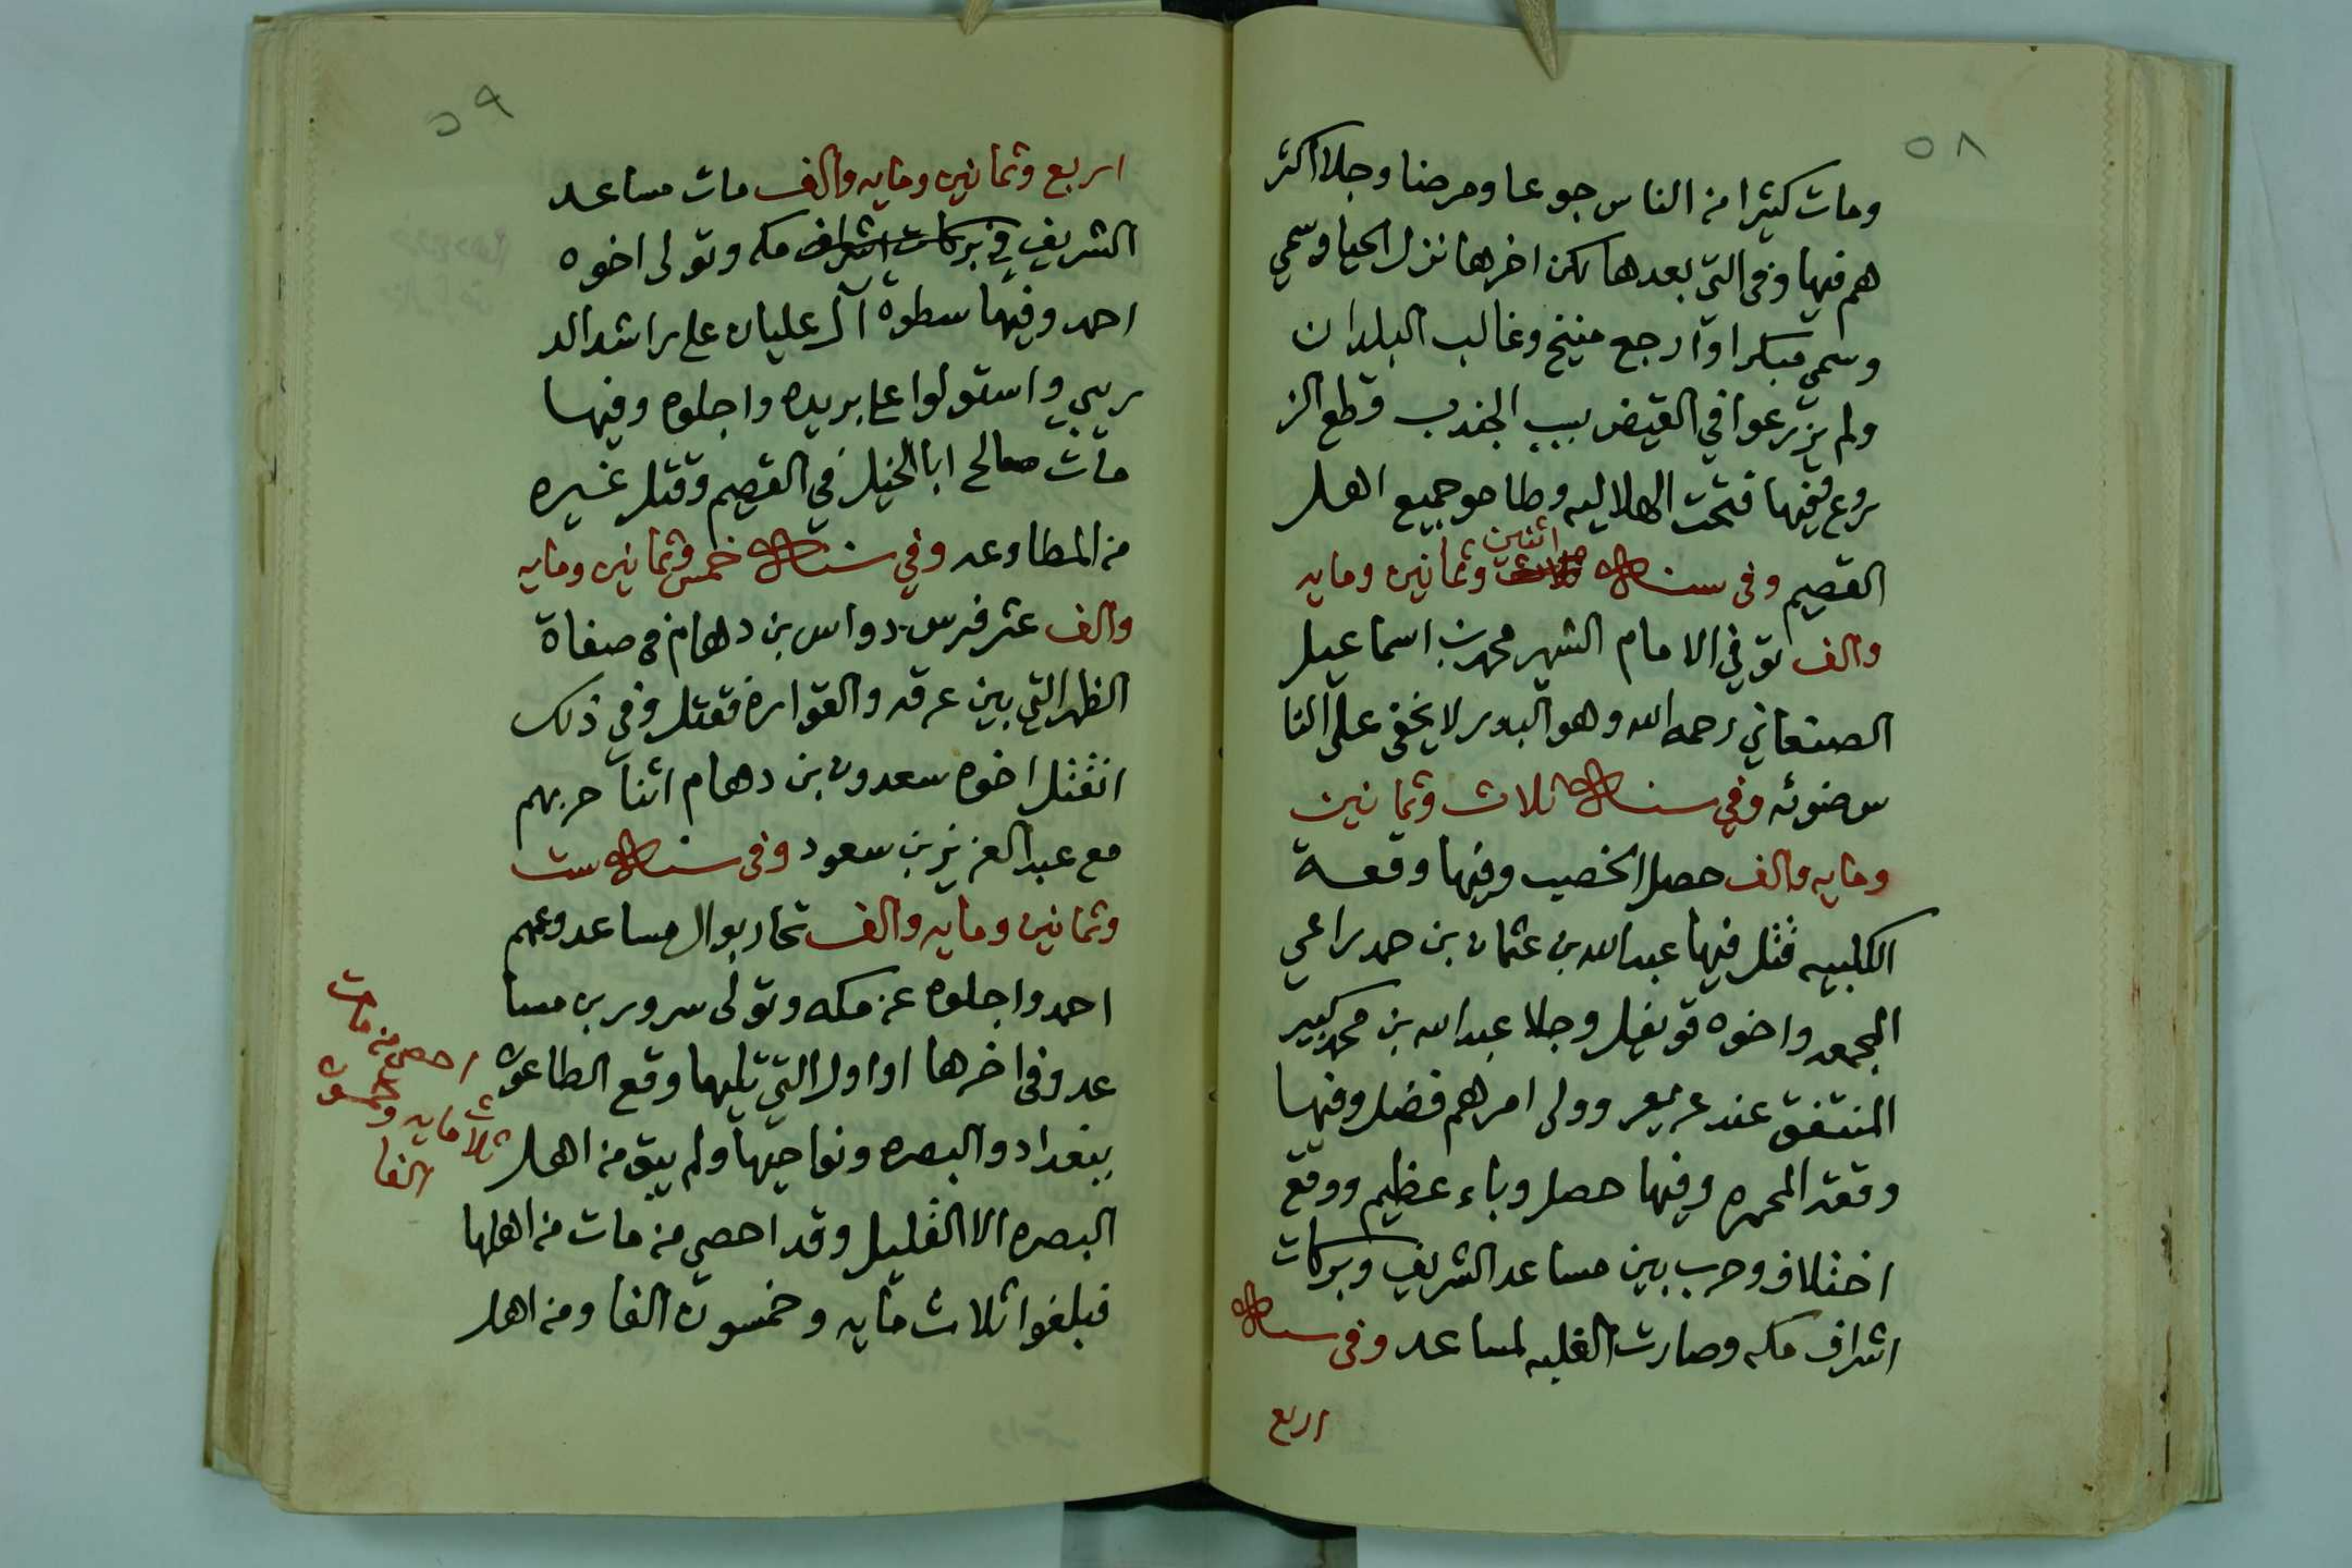 ٥٨
ومات كثيرا من الناس جوعا ومرضا وجلا اكثر
هم فيها وفي التي بعدها لكن اخرها نزل الحيا وسمي
وسمي مبكرا وارجع منيخ وغالب البلدان
ولم يزرعوا في القيض بسبب الجندب قطع الز
روع وفيها فتحت الهلاليه وطاحو جميع اهل
القصيم وفي سنة اثنين وثمانين ومايه
والف توفي الامام الشهير محمد بن اسماعيل
الصنعاني رحمه الله وهو البدر لا يخفى على النا
س ضوئه وفي سنة ثلاث وثمانين
ومايه والف حصل الخصيب وفيها وقعة
الكلبيه قتل فيها عبدالله بن عثمان بن حمد راعي
المجمعه واخوه قويفل وجلا عبدالله بن محمد كبير
المنتفق عند عريعر وولى امرهم فضل وفيها
وقعة المحمره وفيها حصل وباء عظيم ووقع
اختلاف وحرب بين مساعد الشريف وبركات
اشراف مكه وصارت الغلبه لمساعد وفي سنة
اربع
٥٩
اربع وثمانين ومايه والف مات مساعد
الشريف في بركات اشراف مكه وتولى اخوه
احمد وفيها سطوة آل عليان على راشد الد
ريبي واستولوا على بريده واجلوه وفيها
مات صالح ابا الخيل في القصيم وقتل غيره
من المطاوعه وفي سنة خمس وثمانين ومايه
والف عثر فرس دواس بن دهام في صفاة
الظهر التي بين عرقه والقواره فقتل وفي ذلك
انقتل اخوه سعدون بن دهام اثنا حربهم
مع عبدالعزيز بن سعود وفي سنة ست
وثمانين ومايه والف تحاربو ال مساعد وعمهم
احمد واجلوه عن مكه وتولى سرور بن مسا
عد وفي اخرها او اول التي تليها وقع الطاعون
ببغداد والبصره ونواحيها ولم يبق من اهل
البصره الا القليل وقد احصي من مات من اهلها
فبلغوا ثلاث مايه وخمسون الفا ومن اهل
احصي من مات
ثلاث مايه وخمسون
الفا